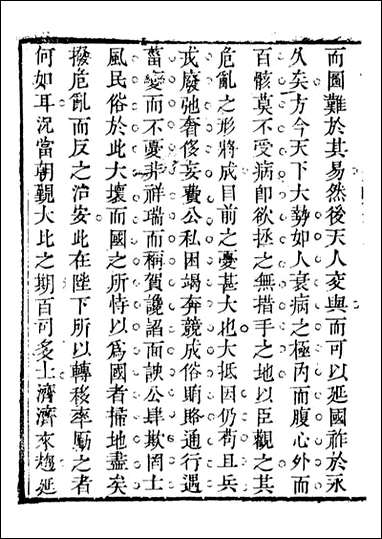 而圖難於其易然後天人交與而可以延國祚於永
久矣方今天下大勢如人衰病之極內而腹心外而
百骸莫不受病即欲拯之無措手之地以臣觀之其
危亂之形將成目前之憂甚大也大抵因仍茍且兵
戎廢弛奢侈妄費公私困竭奔競成俗賄賂通行遇
菑變而不憂非祥瑞而稱賀讒諂面諛公肆欺罔士
風民俗於此大壞而國之所恃以爲國者掃地盡矣
撥危亂而反之治安此在陛下所以轉移率勵之者
何如耳況當朝覲大比之期百司多士濟濟來趨延